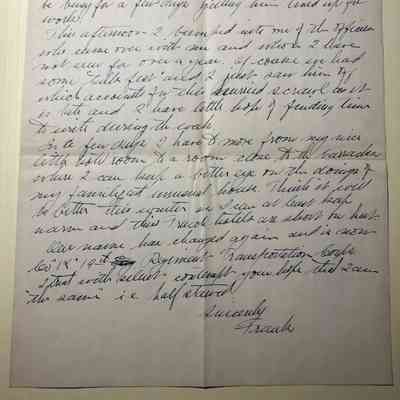 be busy for a few days getting him lined up for
work.
This afternoon I bumped into one of the officers
who came over with me and whom I have
not seen for over a year. Of course we had
some talk fest and I first saw him
which accounts for this hurried scrawl as it
is late and I have little hope of finding time
to write during the week.
In a few days I have to move from my nice
little hotel room to a room close to the barracks
where I can keep a better eye on the doings of
my family at unusual hours. Think it will
be better this winter as I can at least keep
warm and these French hotels are short on heat.
Our name has changed again and is now
Co "K" 19th Regiment Transportation Corps
I trust with silent contempt your hope that I am
"the same" i.e. half stewed
Sincerely
Frank